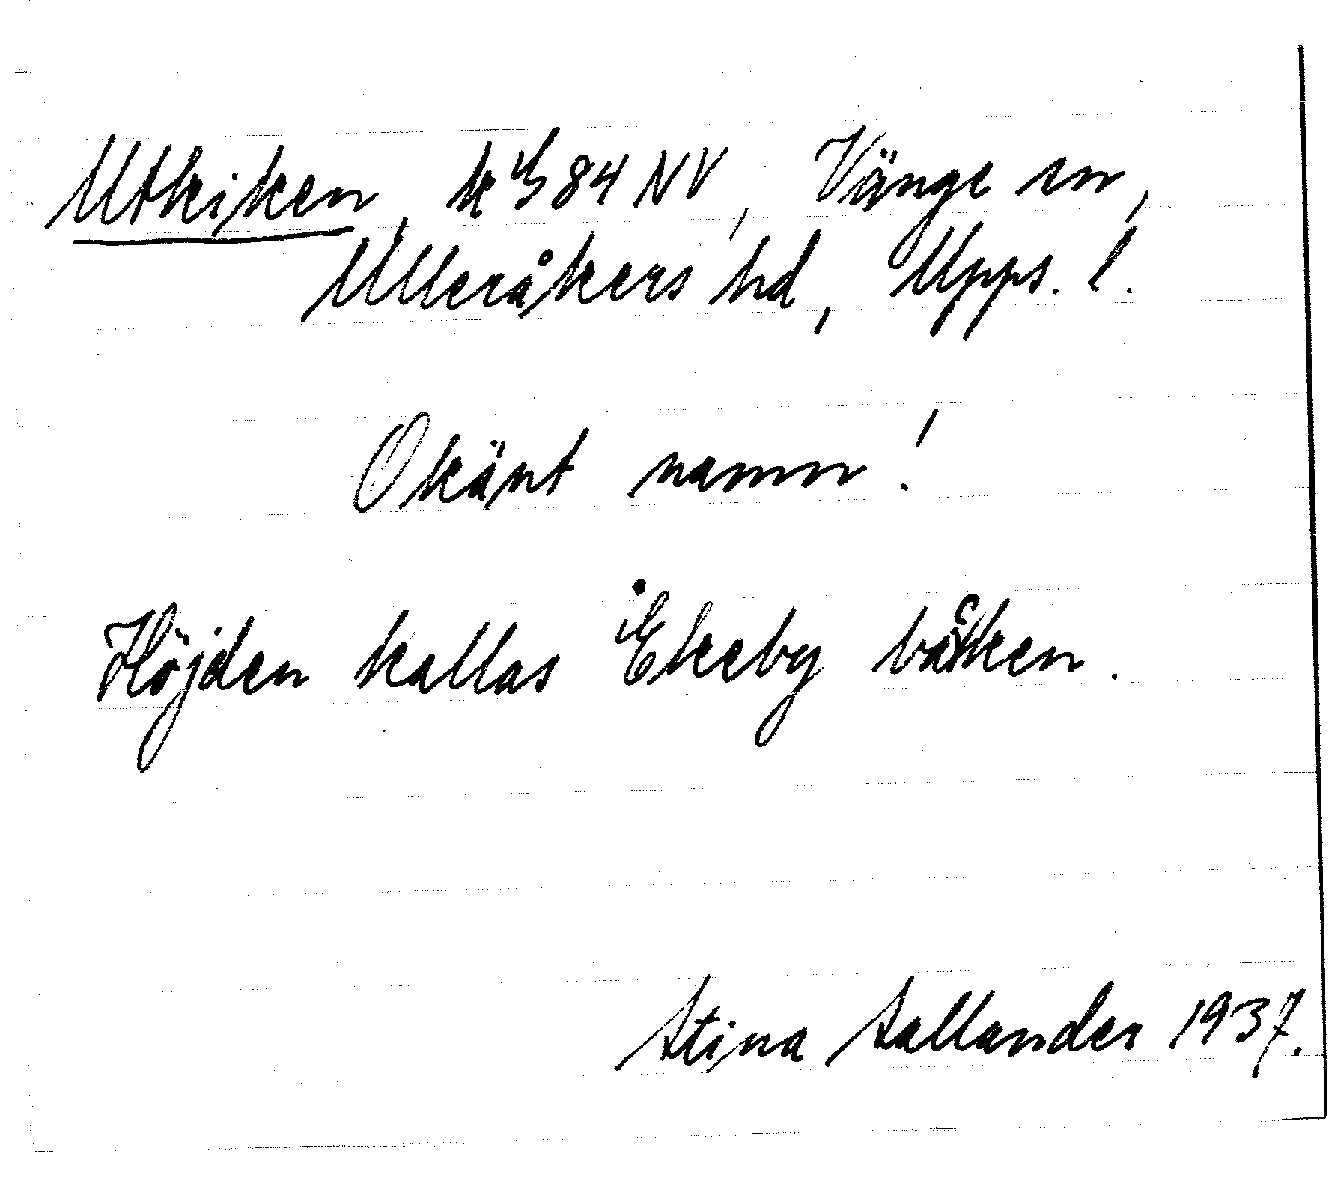 Utkiken, k 84 NV, Vänge sn,
Ulleråkers hd, Upps. l.
Okänt namn!
Höjden kallas Ekeby
Stina Sallander 1937.